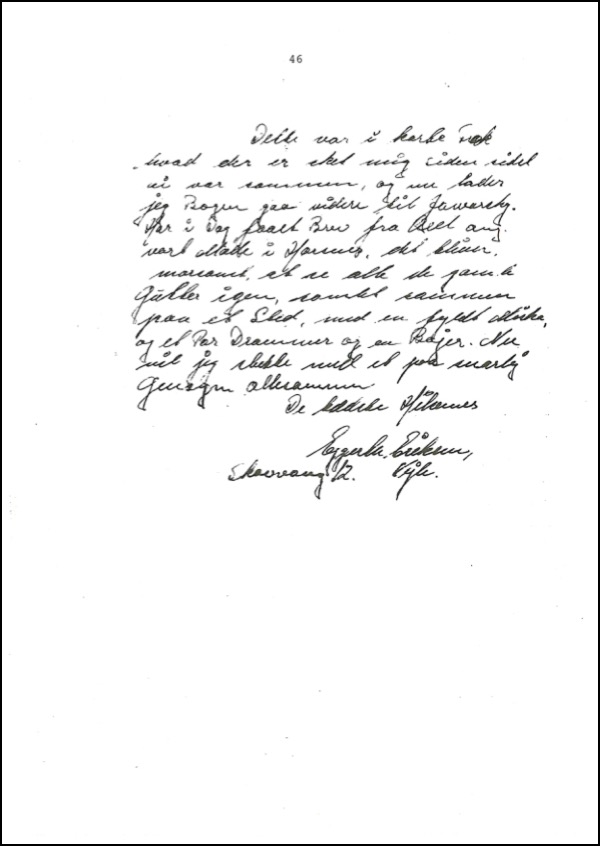 46
Dette var i korte Træk
hvad der er sket mig siden sidst
vi var sammen, og nu lader
jeg Bogen gaa videre til Jaworsky.
Har i Dag faaet Brev fra ang.
vort Møde i Horsens, det bliver
morsomt, at se alle de gamle
Gutter igen, samlet sammen
paa et Sted, med en fyldt Mærke,
og et Par Drammer og en Bajer. Nu
vil jeg slutte med et paa snarlig
Gensyn allesammen
De bedste Hilsener
Eggert. Eriksen,
Skovvang 12. Vejle.